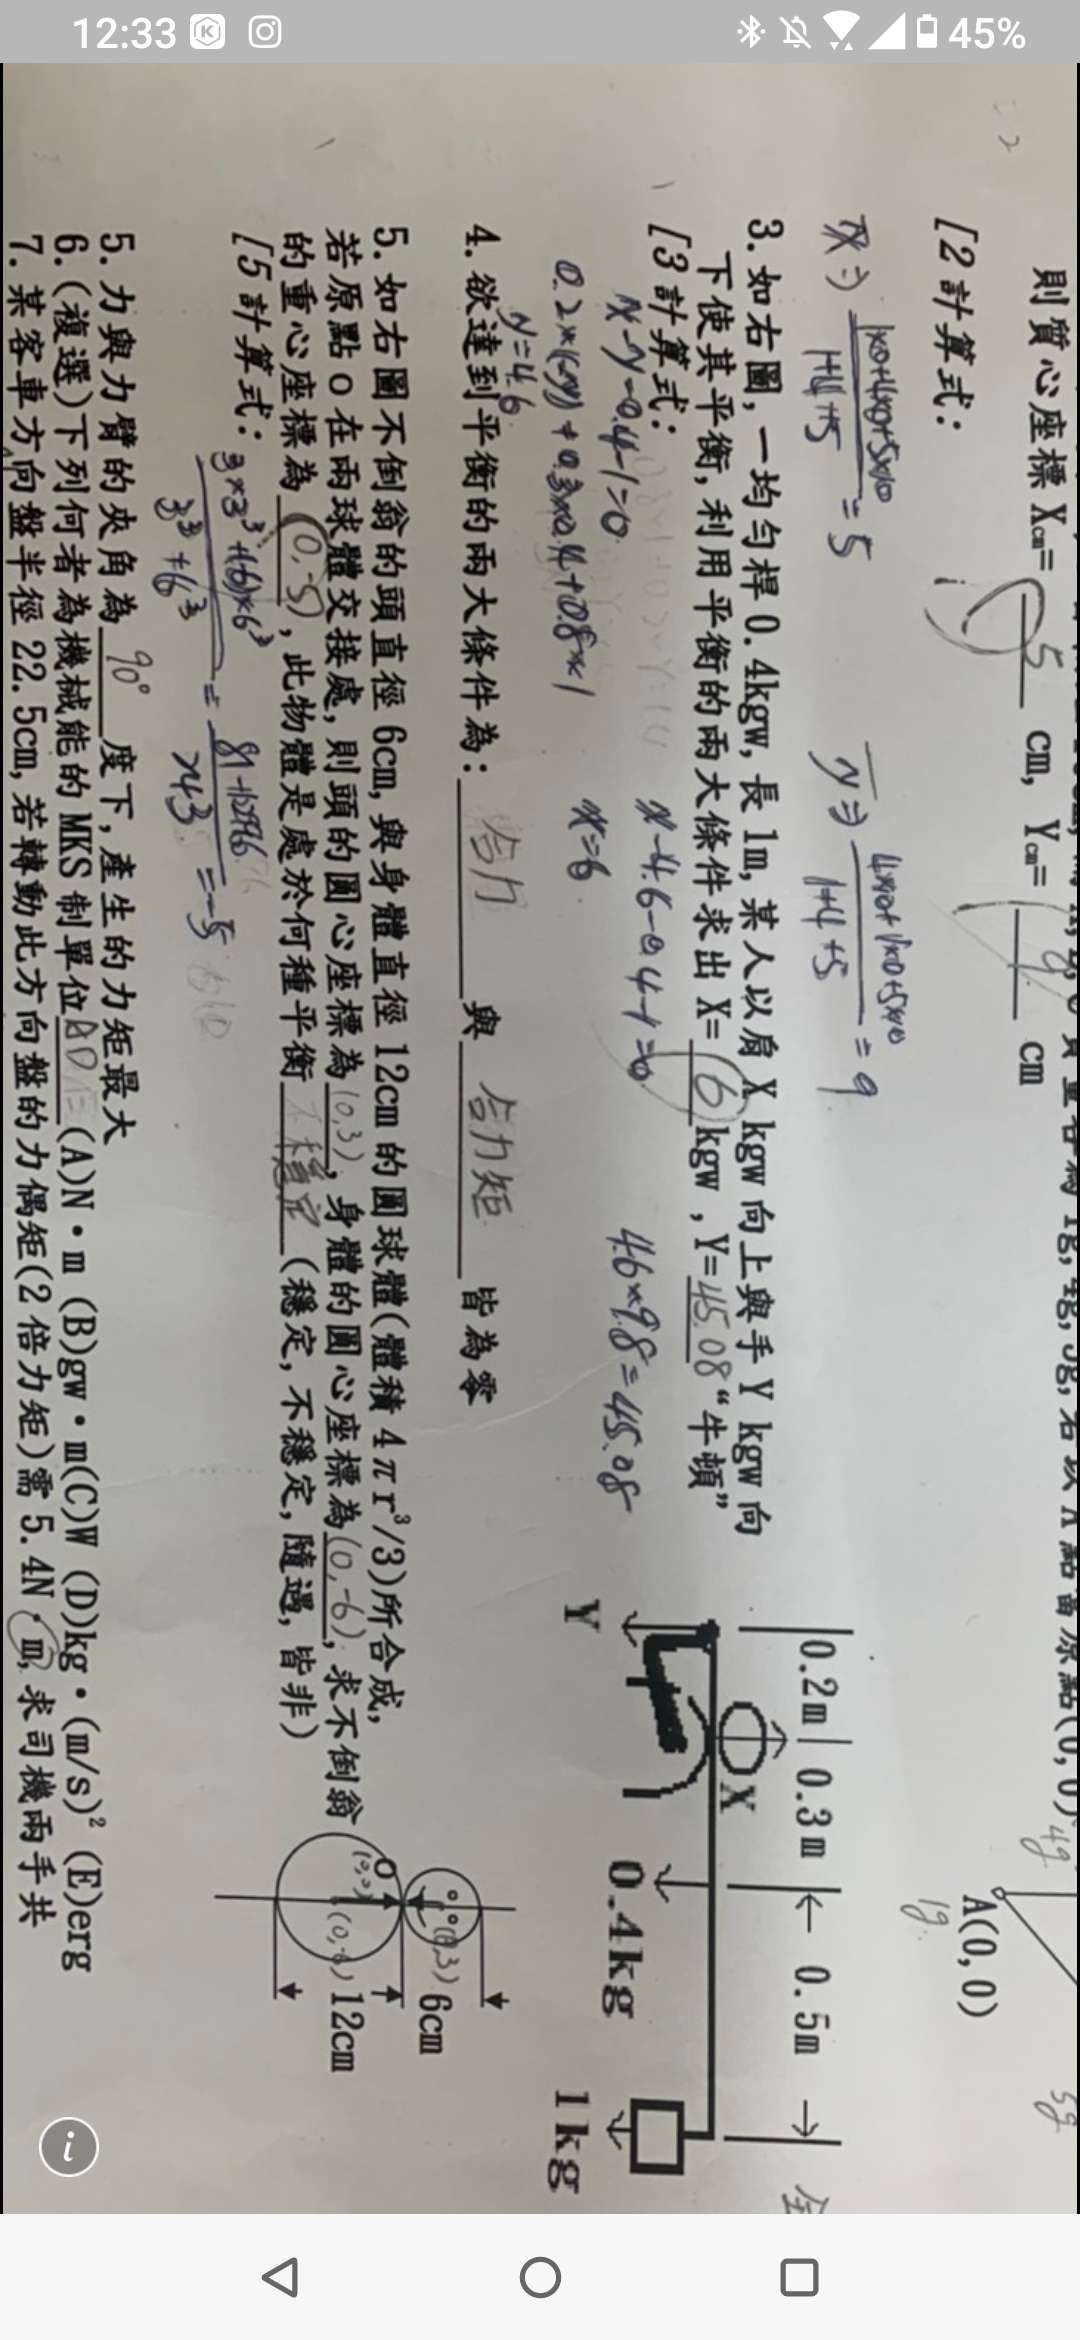 12:33
45%
則質心座標 Xcm= 5 cm, Ycm= 9 cm
[2計算式:
1×0+4×0+5×10
1+4+5
= 5
4×10+1×0+5×10
1+4+5
= 9
4g
A(0,0)
1g
5g
3.如右圖,一均勻桿0.4kgw,長1m,某人以肩X kgw向上與手Y kgw向
下使其平衡,利用平衡的兩大條件求出X= 6 kgw,Y=45.08“牛頓”
[3計算式:
x-y-0.4-1=0
x-4.6-0.4-1=0
4.6×9.8=45.08
0.3×0.4+0.8×1
x=6
y=4.6
0.2m 0.3m ← 0.5m →
X
Y
0.4kg
1kg
4.欲達到平衡的兩大條件為: 合力 與 合力矩 皆為零
5.如右圖不倒翁的頭直徑6cm,與身體直徑12cm的圓球體(體積4πr³/3)所合成,
若原點O在兩球體交接處,則頭的圓心座標為(0,3),身體的圓心座標為(0,-6),求不倒翁
的重心座標為(0,-5),此物體是處於何種平衡 不穩定 (穩定,不穩定,隨遇,皆非)
[5計算式:
3×3³+(-6)×6³
3³+6³
=
243
=-5
O
(0,3)
6cm
12cm
5.力與力臂的夾角為 90° 度下,產生的力矩最大
6.(複選)下列何者為機械能的MKS制單位 ADE (A)N·m (B)gw·m(C)W (D)kg·(m/s)² (E)erg
7.某客車方向盤半徑22.5cm,若轉動此方向盤的力偶矩(2倍力矩)需5.4N·m,求司機兩手共